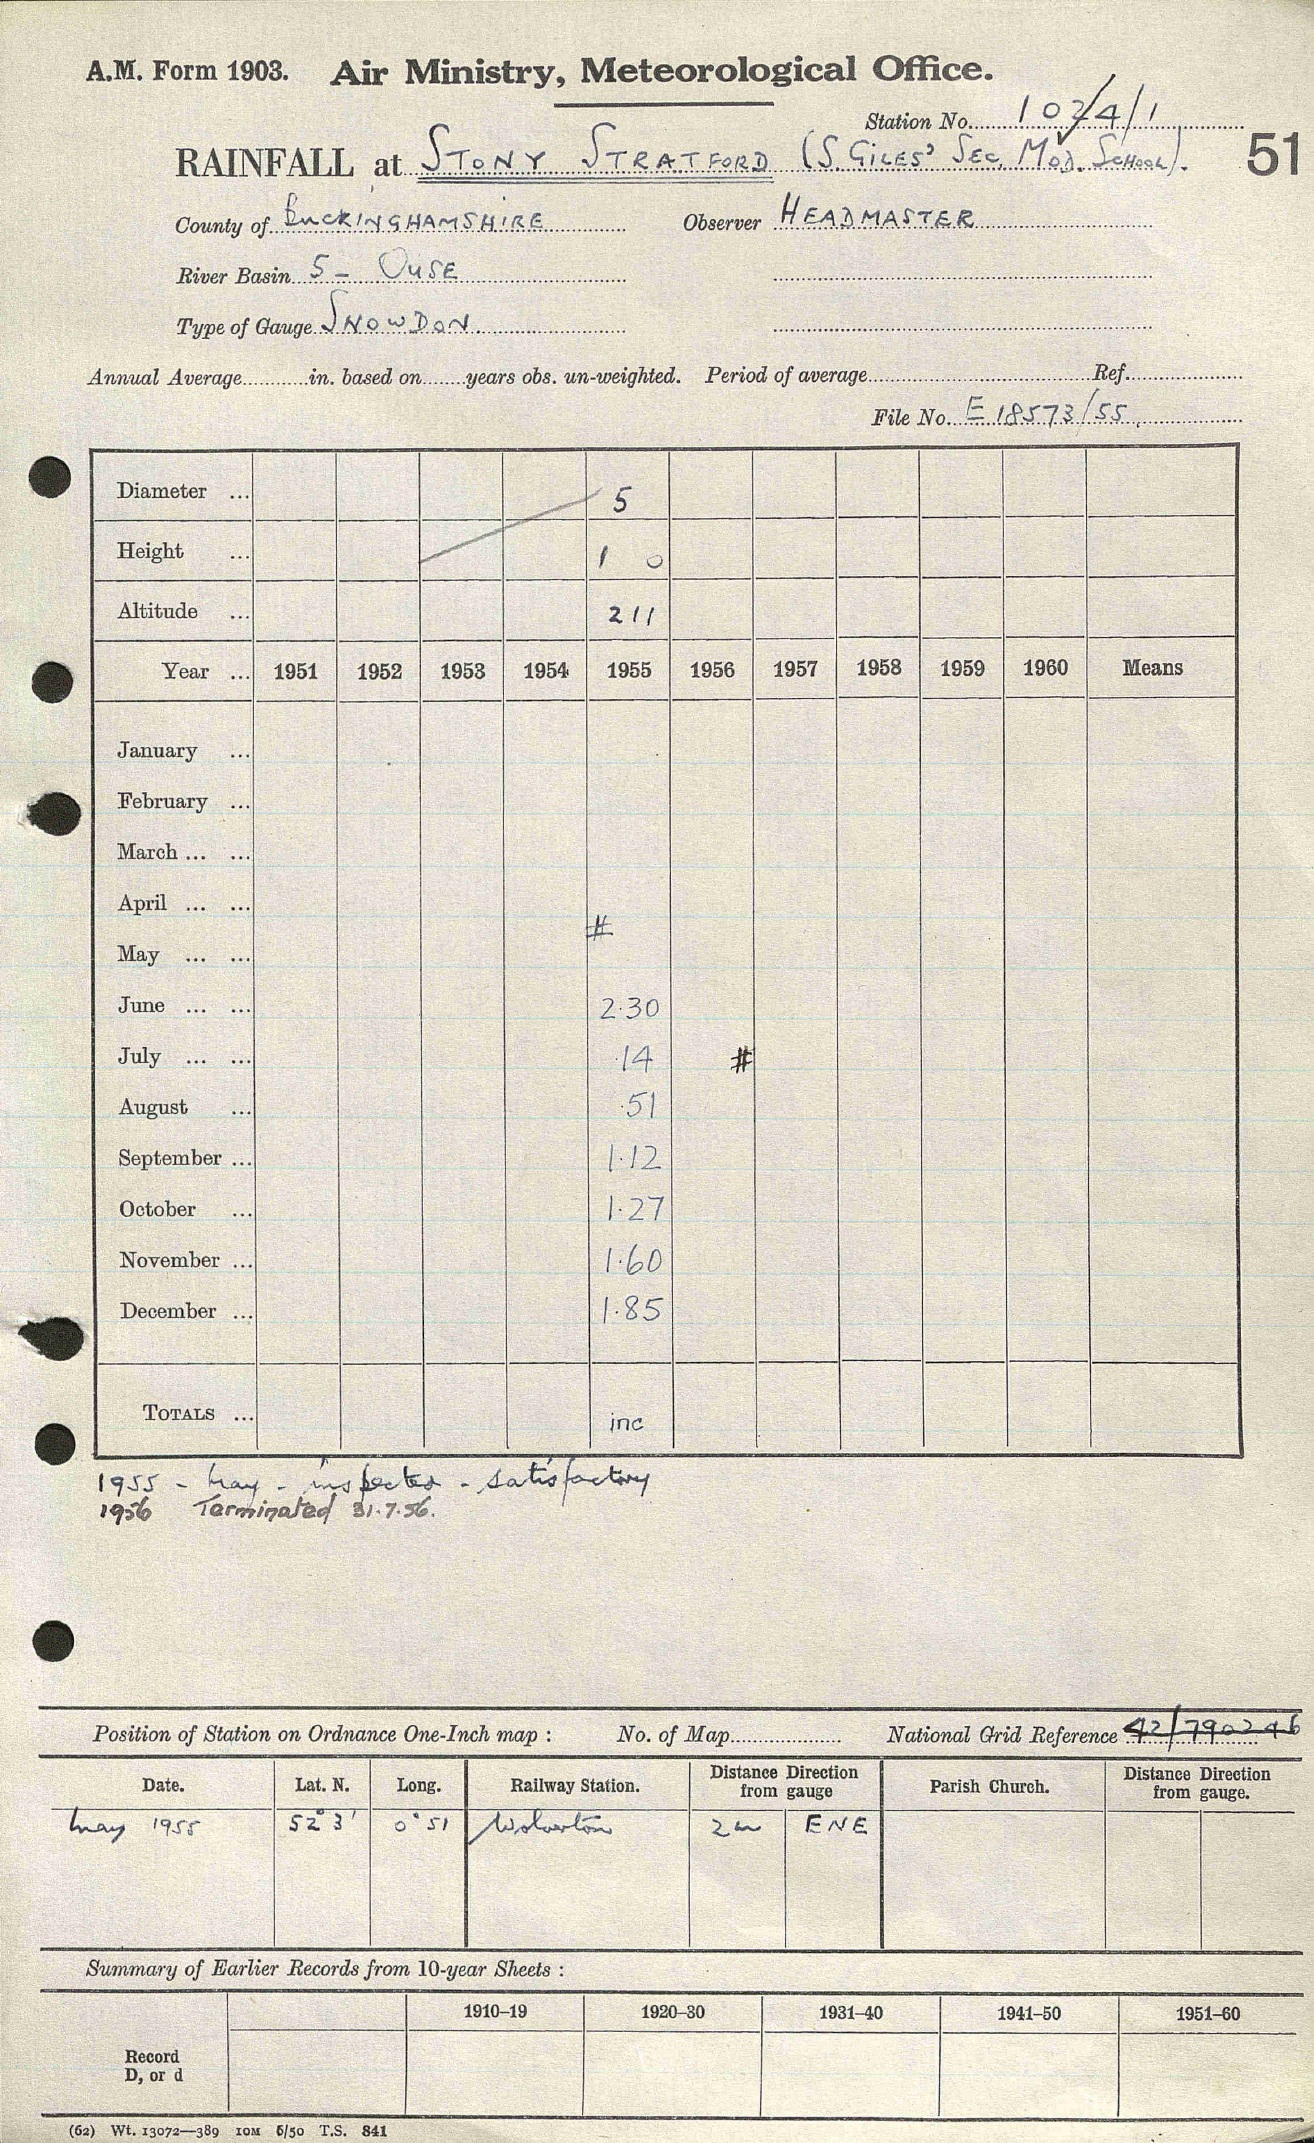 A.M. Form 1903. Air Ministry, Meteorological Office.
Station No. 1024/1
RAINFALL at STONY STRATFORD (S. GILES' SEC. MOD. SCHOOL). 51
County of BUCKINGHAMSHIRE Observer HEADMASTER
River Basin 5 - OUSE
Type of Gauge SNOWDON
Annual Average in. based on years obs. un-weighted. Period of average Ref.
File No. E 18573/55
Diameter ... 5
Height ... 1 0
Altitude ... 211
Year ... 1951 1952 1953 1954 1955 1956 1957 1958 1959 1960 Means
January ...
February ...
March ... ...
April ... ...
#
May ... ...
June ... ... 2.30
July ... ... .14 #
August ... .51
September ... 1.12
October ... 1.27
November ... 1.60
December ... 1.85
TOTALS ... inc
1955 - May - inspected - satisfactory
1956 Terminated 31.7.56.
Position of Station on Ordnance One-Inch map : No. of Map National Grid Reference 42/790246
Date. Lat. N. Long. Railway Station. Distance Direction from gauge Parish Church. Distance Direction from gauge.
May 1955 52° 3' 0° 51 Wolverton 2m ENE
Summary of Earlier Records from 10-year Sheets :
1910–19 1920–30 1931–40 1941–50 1951–60
Record
D, or d
(62) Wt. 13072—389 10M 6/50 T.S. 841